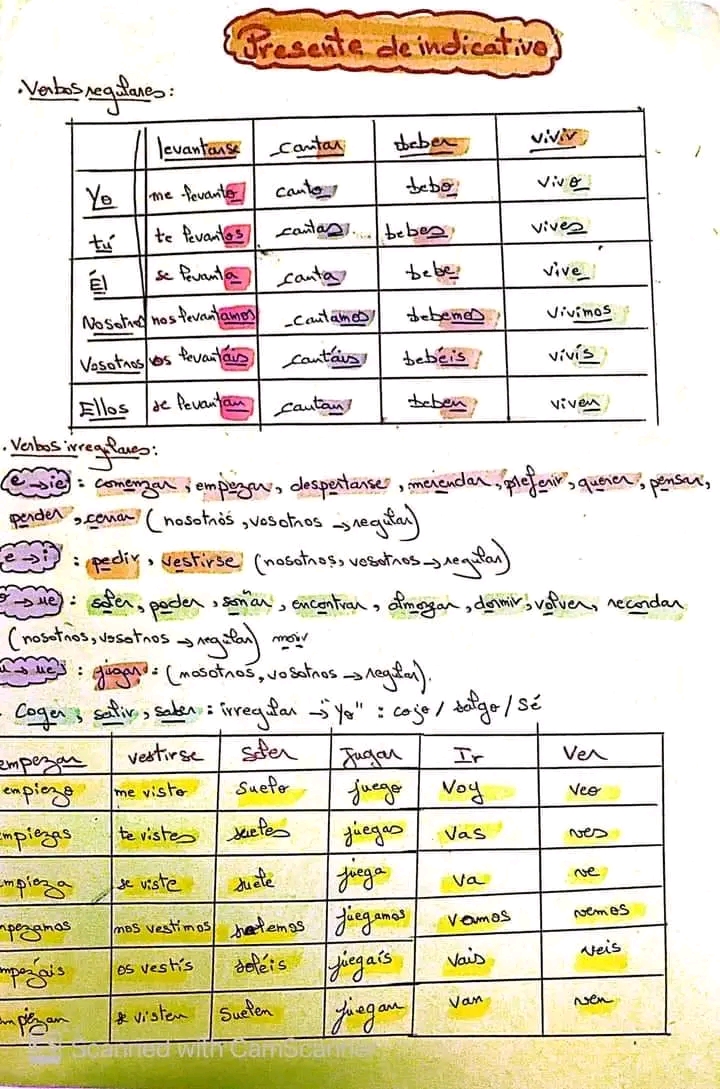 Presente de indicativo
. Verbos regulares :
levantarse cantar beber vivir
Yo me levanto canto bebo vivo
tú te levantas cantas bebes vives
Él se levanta canta bebe vive
Nosotros nos levantamos cantamos bebemos vivimos
Vosotros os levantáis cantáis bebéis vivís
Ellos se levantan cantan beben viven
. Verbos irregulares :
e→ie : comenzar, empezar, despertarse, merendar, preferir, querer, pensar,
perder, cerrar (nosotros, vosotros → regular)
e→i : pedir, vestirse (nosotros, vosotros → regular)
o→ue : soler, poder, soñar, encontrar, almorzar, dormir, volver, recordar
(nosotros, vosotros → regular) morir
u→ue : jugar : (nosotros, vosotros → regular).
. Coger, salir, saber : irregular → "Yo" : cojo / salgo / Sé
empezar vestirse Soler Jugar Ir Ver
empiezo me visto Suelo juego Voy Veo
mpiezas te vistes sueles juegas Vas ves
mpieza se viste suele juega Va ve
mpezamos nos vestimos solemos juegamos Vamos vemos
mpezáis os vestís soléis juegaís Vais veis
mpiezan se visten Suelen juegan Van ven
Scanned with CamScanner